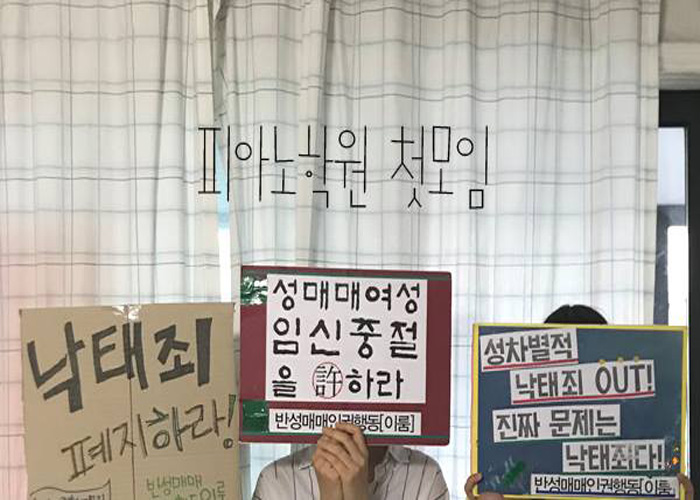 피아노학원 첫모임
낙태죄
폐지하라!
반성매매
성매매여성
임신중절
을 許하라
반성매매인권행동[이룸]
성차별적
낙태죄 OUT!
진짜 문제는
낙태죄다!
반성매매인권행동[이룸]